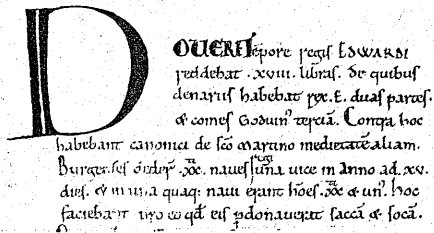 DOVERE tēpore regis EDWARDI
reddebat .xviii. libras. de quibus
denariis habebat rex .E. duas partes.
& comes Goduin' terciā. Contra hoc
habebant canonici de scō Martino medietatē aliam.
Burgenses dederť .xx. naues regi una uice in anno ad .xv.
dies. & in una quaq; naui erant hōes .xx. & un'. hoc
faciebant pro eo qđ eis pdonauerat saccā & socā.